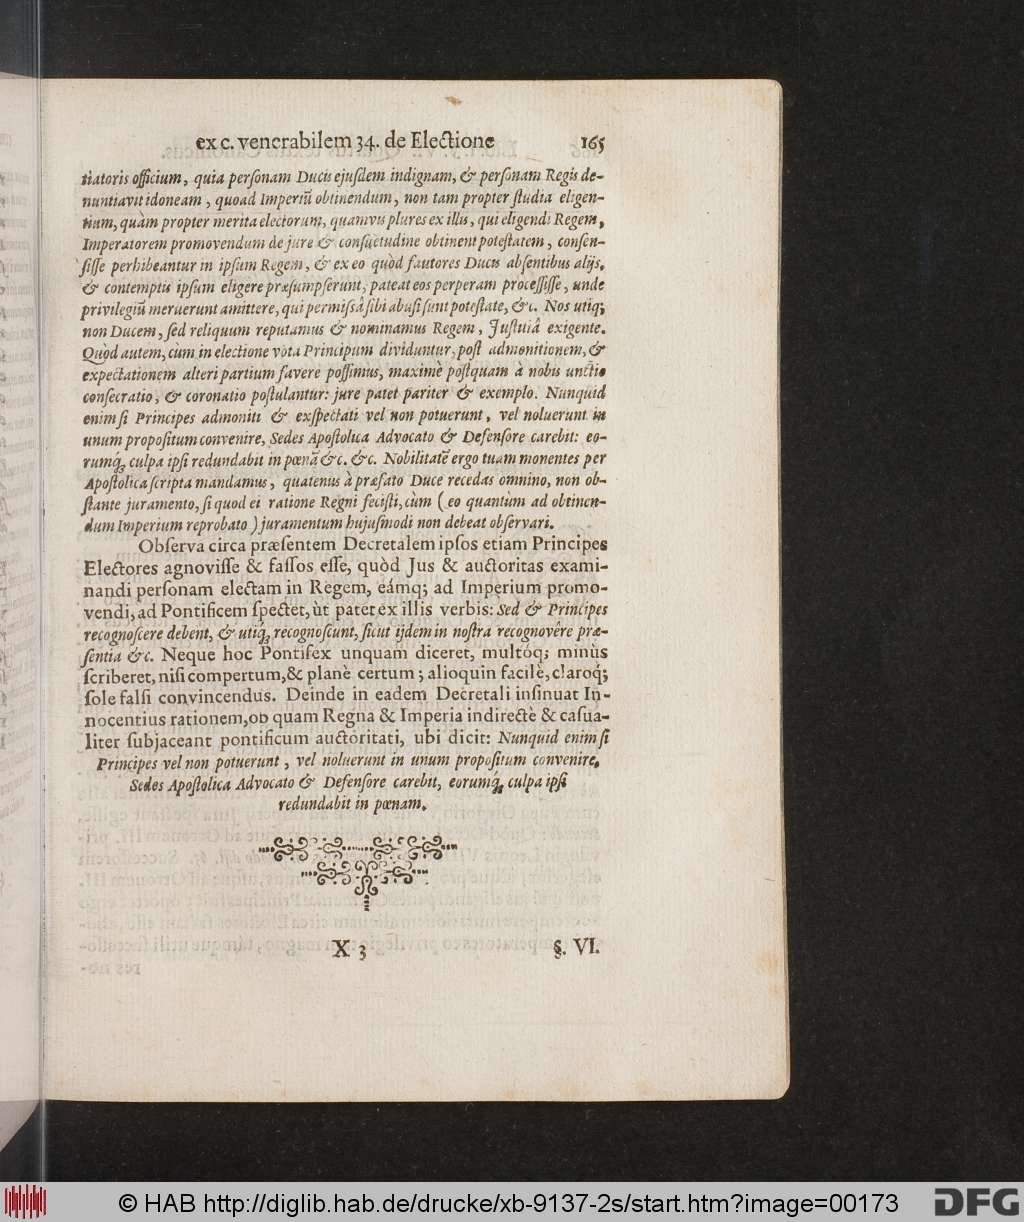 ex c. venerabilem 34. de Electione 165
tiatoris officium, quia personam Ducis ejusdem indignam, & personam Regis de-
nuntiavit idoneam, quoad Imperiũ obtinendum, non tam propter studia eligen-
tium, quàm propter merita electorum, quamvis plures ex illis, qui eligendi Regem,
Imperatorem promovendum de jure & consuetudine obtinent potestatem, consen-
sisse perhibeantur in ipsum Regem, & ex eo quòd fautores Ducis absentibus alijs,
& contemptis ipsum eligere præsumpserunt, pateat eos perperam processisse, unde
privilegiũ meruerunt amittere, qui permissâ sibi abusi sunt potestate, &c. Nos utiq;
non Ducem, sed reliquum reputamus & nominamus Regem, Justitiâ exigente.
Quòd autem, cùm in electione vota Principum dividuntur, post admonitionem, &
expectationem alteri partium favere possimus, maximè postquam à nobis unctio
consecratio, & coronatio postulantur: jure patet pariter & exemplo. Nunquid
enim si Principes admoniti & exspectati vel non potuerunt, vel noluerunt in
unum propositum convenire, Sedes Apostolica Advocato & Defensore carebit: eo-
rumq́; culpa ipsi redundabit in pœnã &c. &c. Nobilitatẽ ergo tuam monentes per
Apostolica scripta mandamus, quatenus à præfato Duce recedas omnino, non ob-
stante juramento, si quod ei ratione Regni fecisti, cùm (eo quantùm ad obtinen-
dum Imperium reprobato) juramentum hujusmodi non debeat observari.
Observa circa præsentem Decretalem ipsos etiam Principes
Electores agnovisse & fassos esse, quòd Jus & auctoritas exami-
nandi personam electam in Regem, eámq; ad Imperium promo-
vendi, ad Pontificem spectet, ùt patet ex illis verbis: Sed & Principes
recognoscere debent, & utiq́; recognoscunt, sicut ijdem in nostra recognovêre præ-
sentia &c. Neque hoc Pontifex unquam diceret, multóq; minùs
scriberet, nisi compertum, & planè certum; alioquin facilè, claroq́;
sole falsi convincendus. Deinde in eadem Decretali insinuat In-
nocentius rationem, ob quam Regna & Imperia indirectè & casua-
liter subjaceant pontificum auctoritati, ubi dicit: Nunquid enim si
Principes vel non potuerunt, vel noluerunt in unum propositum convenire,
Sedes Apostolica Advocato & Defensore carebit, eorumq́; culpa ipsi
redundabit in pœnam.
X 3 §. VI.
© HAB http://diglib.hab.de/drucke/xb-9137-2s/start.htm?image=00173
DFG